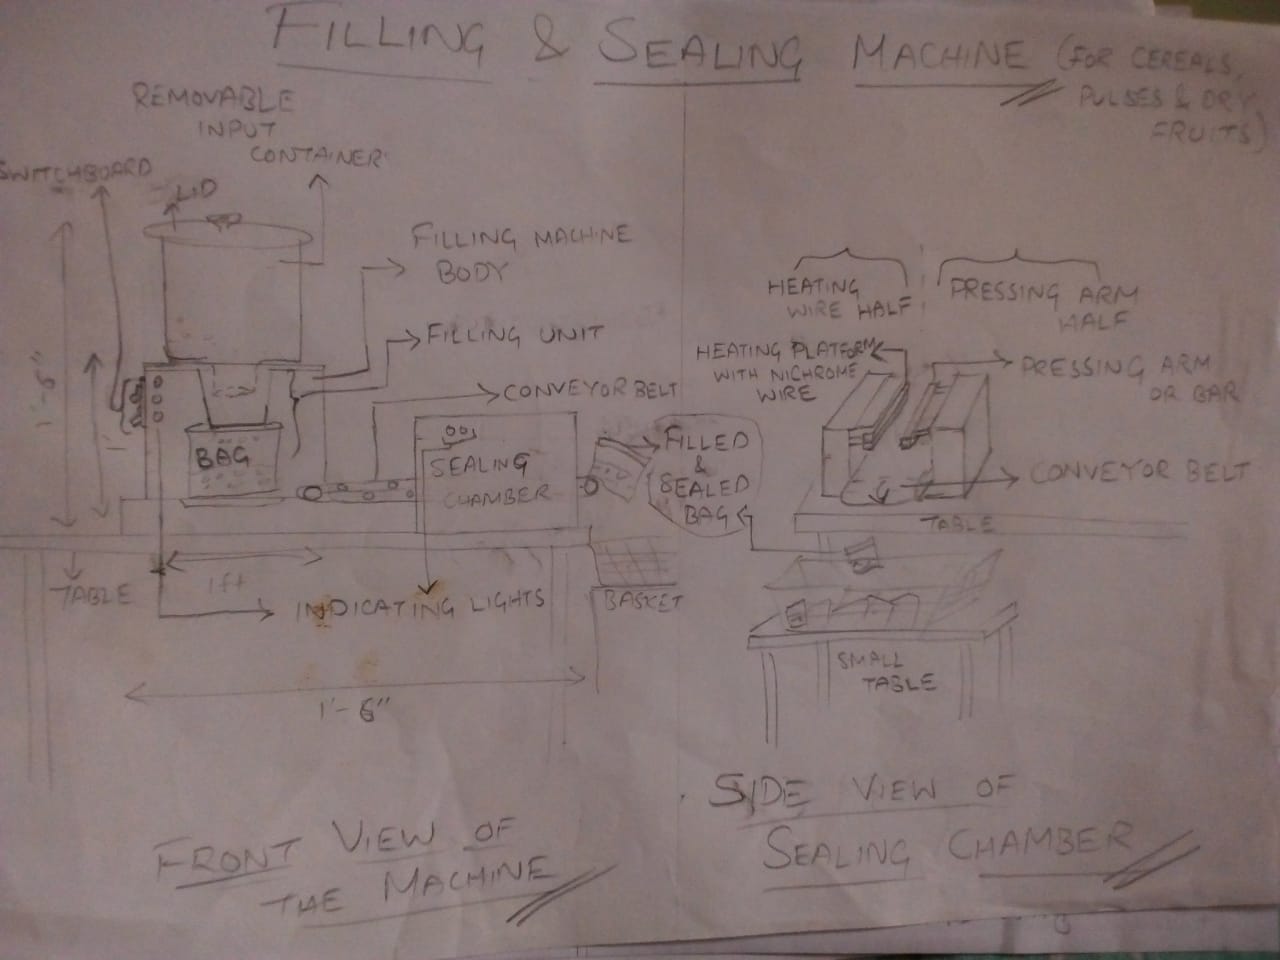 FILLING & SEALING MACHINE (FOR CEREALS,
PULSES & DRY
FRUITS)
REMOVABLE
INPUT
CONTAINER
SWITCHBOARD
LID
FILLING MACHINE
BODY
FILLING UNIT
CONVEYOR BELT
1'-6"
1'
BAG
SEALING
CHAMBER
FILLED
&
SEALED
BAG
TABLE
1ft
INDICATING LIGHTS
BASKET
1'-6"
FRONT VIEW OF
THE MACHINE
HEATING
WIRE HALF
PRESSING ARM
HALF
HEATING PLATFORM
WITH NICHROME
WIRE
PRESSING ARM
OR BAR
CONVEYOR BELT
TABLE
SMALL
TABLE
SIDE VIEW OF
SEALING CHAMBER